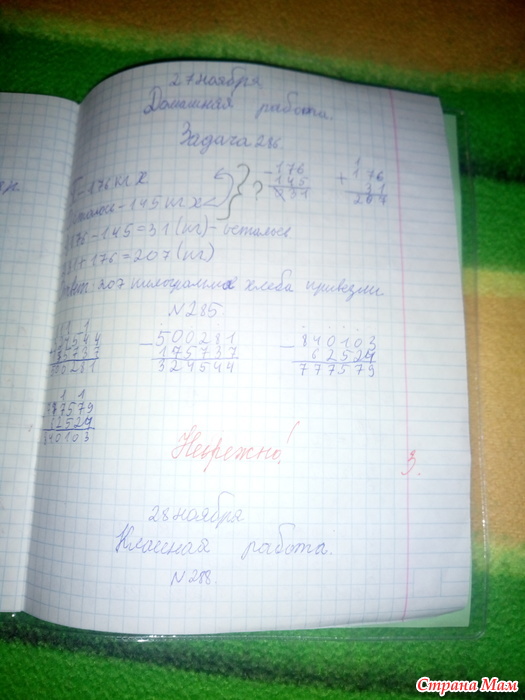 27 ноября.
Домашняя работа.
Задача 286.
176 кг х
145 кг х
?
- 176
145
31
+ 176
31
207
176 - 145 = 31 (кг) - осталось
31 + 176 = 207 (кг)
207 килограммов хлеба привезли
N 285
- 500281
175737
324544
- 840103
62524
777579
Небрежно!
3.
28 ноября
Классная работа.
N 288.
Страна Мам